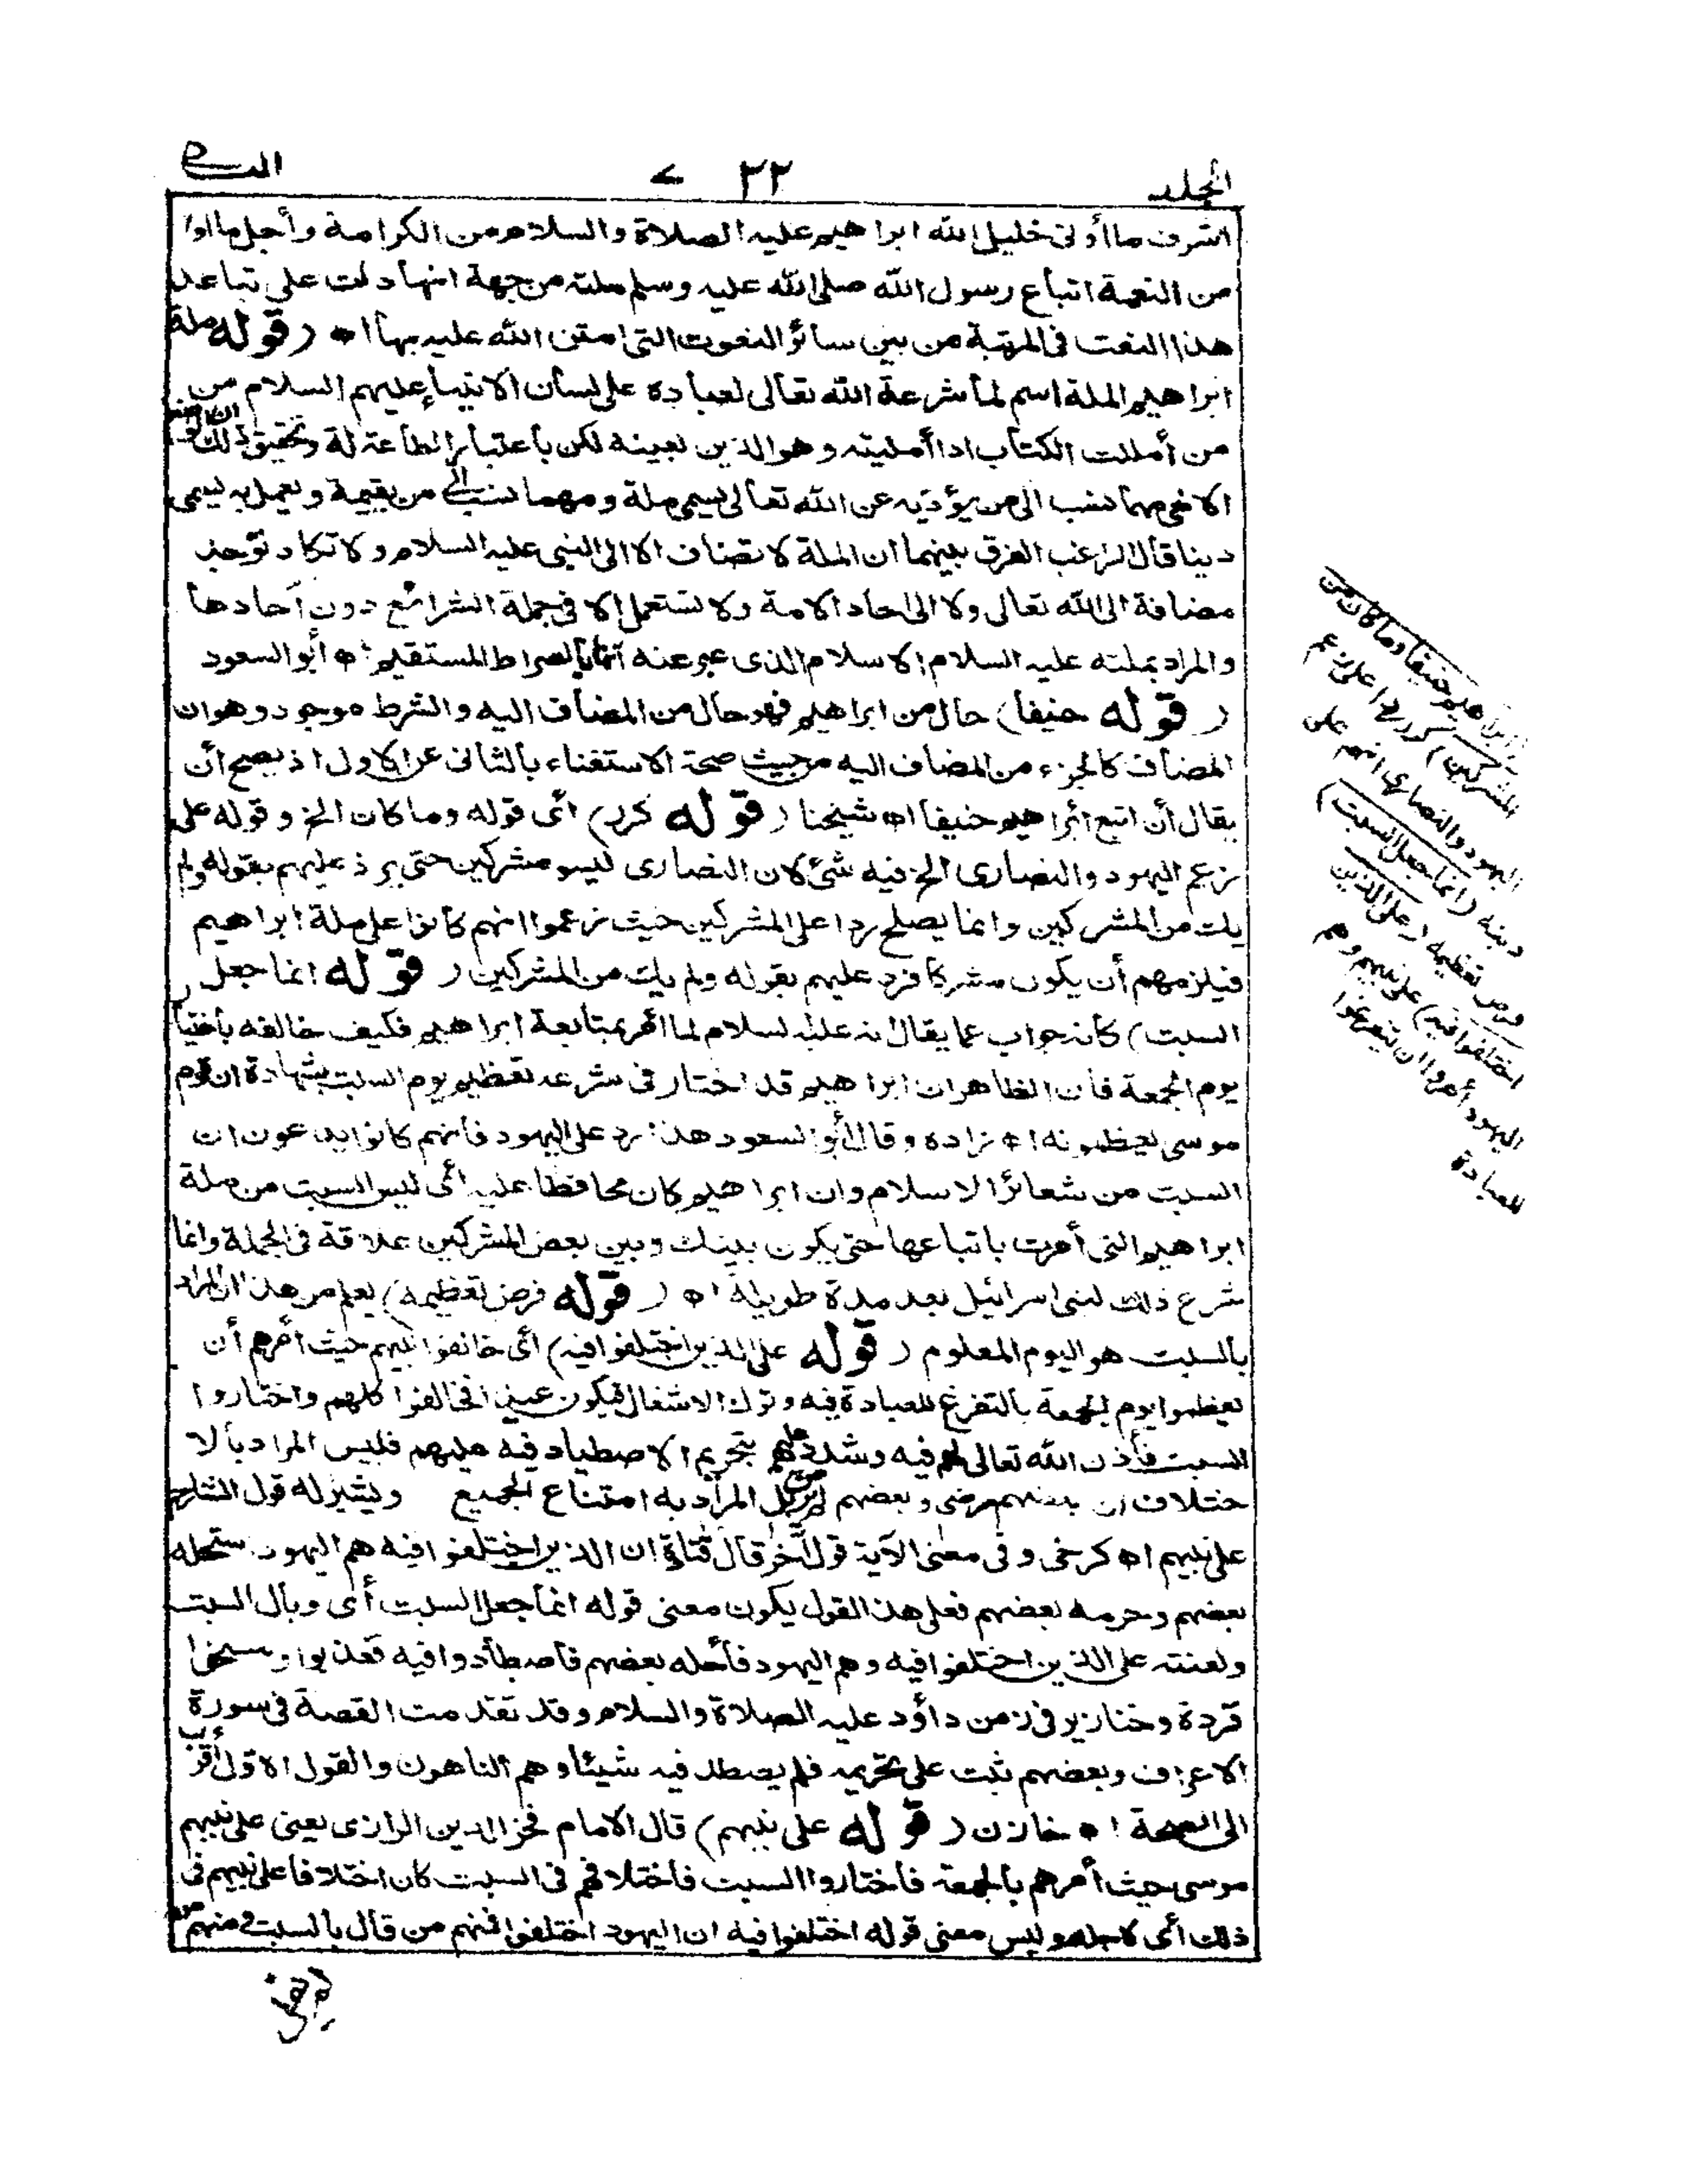 المجلد ٢٢ ٧
اشرف ما أوتى خليل الله ابراهيم عليه الصلاة والسلام من الكرامة وأجل ما اوا
من النعمة اتباع رسول الله صلى الله عليه وسلم ملته من جهة انها دلت على تباعد
هذا النعت فى المرتبة من بين سائر النعوت التى امتن الله عليه بها اه (قوله ملة
ابراهيم الملة اسم لما شرعة الله تعالى لعباده على لسان الانبياء عليهم السلام من
من أمللت الكتاب اذا أمليته وهو الدين بعينه لكن باعتبار الطاعة له وتحقيق ذلك ان
الا مهما نسب الى من يؤديه عن الله تعالى يسمى ملة ومهما نسب الى من يقيمة ويعمل به يسمى
دينا قال الراغب الفرق بينهما ان الملة لا تضاف الا الى النبى عليه السلام ولا تكاد توجد
مضافة الى الله تعالى ولا الى احاد الامة ولا تستعمل الا فى جملة الشرائع دون آحادها
والمراد بملته عليه السلام الاسلام الذى عبر عنه آنفا بالصراط المستقيم اه أبو السعود
(قوله حنيفا) حال من ابراهيم فهو حال من المضاف اليه والشرط موجود وهو ان
المضاف كالجزء من المضاف اليه من حيث صحة الاستغناء بالثانى عن الاول اذ يصح أن
يقال أن اتبع ابراهيم حنيفا اه شيخنا (قوله كرر) أى قوله وما كان الخ وقوله على
زعم اليهود والنصارى الخ فيه شئ لان النصارى ليسو مشركين حتى يرد عليهم بقوله ولم
يك من المشركين وانما يصلح ردا على المشركين حيث زعموا انهم كانوا على ملة ابراهيم
فيلزمهم أن يكون مشركا فرد عليهم بقوله ولم يك من المشركين (قوله انما جعل
السبت) كأنه جواب عما يقال انه عليه السلام لما امر بمتابعة ابراهيم فكيف خالفه باختيار
يوم الجمعة فان الظاهر ان ابراهيم قد اختار فى شرعه تعظيم يوم السبت بشهادة ان قوم
موسى يعظمونه اه زاده وقال أبو السعود هذا رد على اليهود فانهم كانوا يدعون ان
السبت من شعائر الاسلام وان ابراهيم كان محافظا عليه أى ليس السبت من ملة
ابراهيم التى أمرت باتباعها حتى يكون بينك وبين بعض المشركين علاقة فى الجملة وانما
شرع ذلك لبنى اسرائيل بعد مدة طويلة اه (قوله فرض تعظيمه) يعلم من هذا ان المراد
بالسبت هو اليوم المعلوم (قوله على الذين اختلفوا فيه) أى خالفوا نبيهم حيث أمرهم أن
يعظموا يوم الجمعة بالتفرغ للعبادة فيه وترك الاشغال فيكون عيدا فخالفوا كلهم واختاروا
السبت فأذن الله تعالى لهم فيه وشدد عليهم بتحريم الاصطياد فيه عليهم فليس المراد بالا
ختلاف ان بعضهم رضى وبعضهم لم يرض بل المراد به امتناع الجميع ويشير له قول الشارح
على نبيهم اه كرخى وفى معنى الآية قول آخر قال قتادة ان الذين اختلفوا فيه هم اليهود ستحله
بعضهم وحرمه بعضهم فعلى هذا القول يكون معنى قوله انما جعل السبت أى وبال السبت
ولعنته على الذين اختلفوا فيه وهم اليهود فأحله بعضهم فاصطادوا فيه فعذبوا ومسخوا
قردة وخنازير فى زمن داؤد عليه الصلاة والسلام وقد تقدمت القصة فى سورة
الاعراف وبعضهم ثبت على تحريمه فلم يصطد فيه شيئا وهم الناهون والقول الاول أقرب
الى الصحة اه خازن (قوله على نبيهم) قال الامام فخر الدين الرازى يعنى على نبيهم
موسى حيث أمرهم بالجمعة فاختاروا السبت فاختلافهم فى السبت كان اختلافا على نبيهم فى
ذلك أى لاجله وليس معنى قوله اختلفوا فيه ان اليهود اختلفوا فمنهم من قال بالسبت ومنهم من
ابراهيم حنيفا وما كان من
المشركين) كرر ردا على زعم
اليهود والنصارى انهم على
دينه (انما جعل السبت)
فرض تعظيمه (على الذين
اختلفوا فيه) على نبيهم وهم
اليهود أمروا ان يتفرغوا
للعبادة